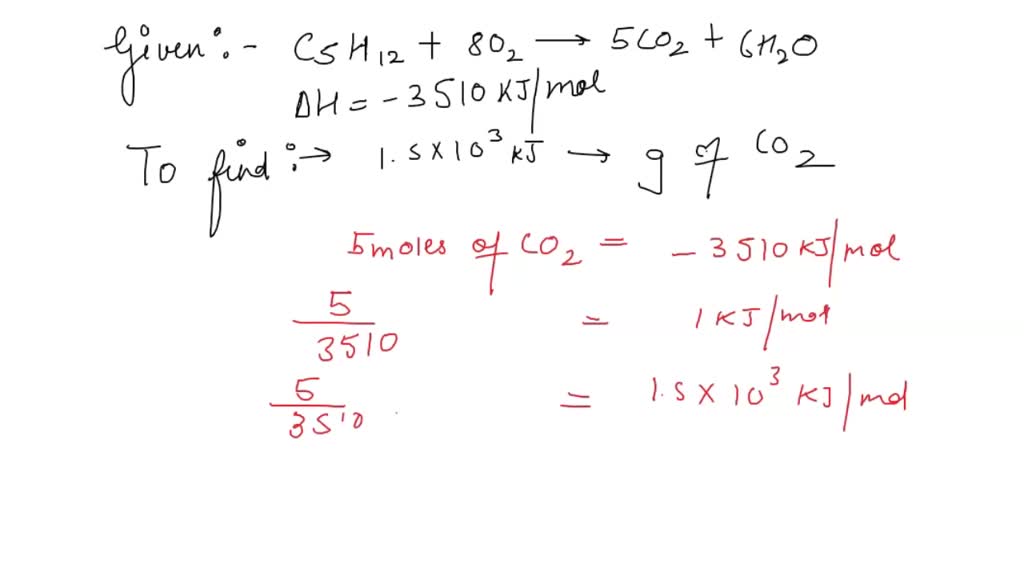 Given:- C5H12 + 8O2 → 5CO2 + 6H2O
ΔH = -3510 KJ/mol
To find :→ 1.5 × 10^3 kJ → g of CO2
5 moles of CO2 = - 3510 KJ/mol
5/3510 = 1 KJ/mol
5/3510 = 1.5 × 10^3 KJ/mol